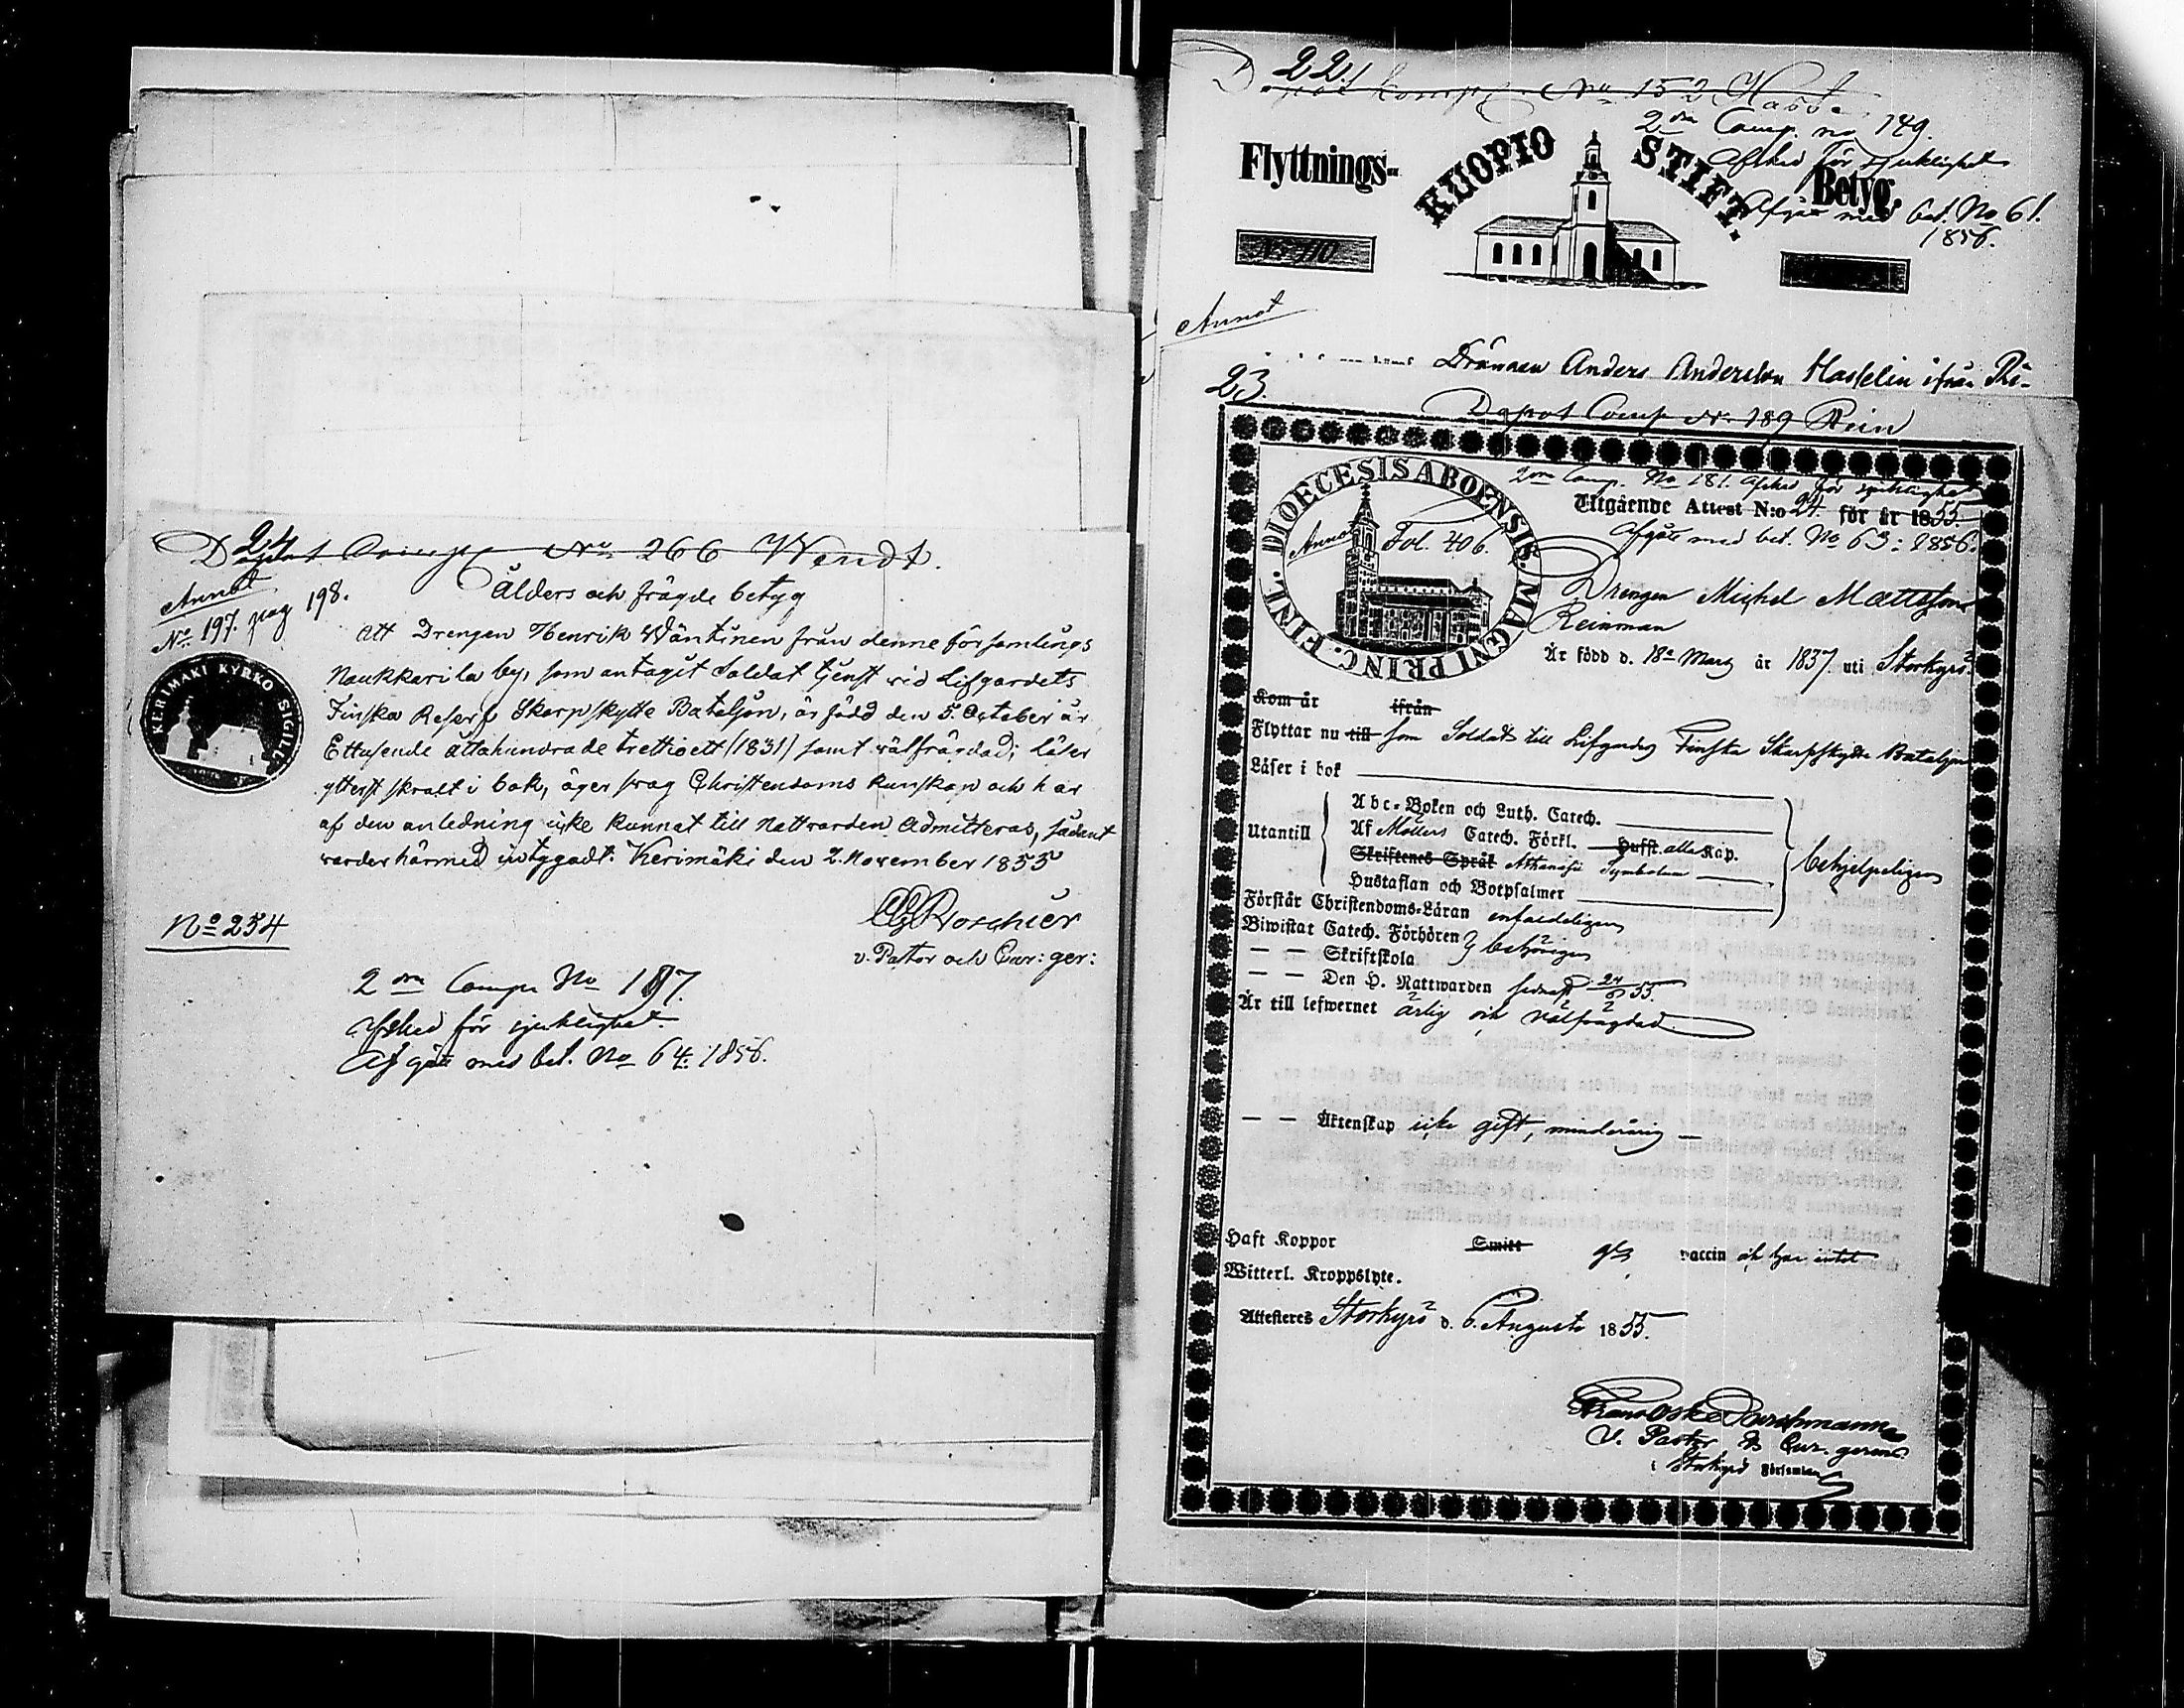 24
Depot Compe No 266 Wendt.
Annot
No 197. pag 198.
Ålders och frägde betyg
Att Drengen Henrik Wäntinen från denne församlings
Naukkarila by, som antagit Soldat tjenst vid Lifgardets
Finska Reserf Skarpskytte Bataljon, är född den 5. October år
Ettusende åttahundrade trettioett (1831) samt välfrägdad; läser
ytterst svalt i bok, äger svag Christendoms kunskap och har
af den anledning icke kunnat till Nattvarden admitteras, sådant
varder härmed intygadt. Kerimäki den 2. November 1855
KERIMÄKI KYRKO SIGILL
Roschier
v. Pastor och Cur: ger:
No 254
2dra Comp. No 187.
Afsked för sjuklighet.
Afgått med bet. No 64: 1856.
22.
Depot Kompe No 152 Hasse
2dra Comp. no 149.
Afsked för sjuklighet
Afgått med bet. No 61.
1856.
Flyttnings-
KUOPIO STIFT.
Betyg.
No 110
Annot
Drängen Anders Andersson Hasselin ifrån
23.
Depot Comp No 189 Rein
2dra Comp. No 181. Afsked för sjuklighet
DIOECESIS ABOENSIS MAGNI PRINC. FINL.
Utgående Attest N:o 24. för år 1855.
Afgått med bet. No 63: 1856.
Annot Fol. 406.
Drengen Michel Mattsson
Reinman
Är född d. 18de Mars år 1837. uti Storkyro
Kom år ifrån
Flyttar nu till som Soldat till Lifgardes Finska Skarpskytte Bataljon
Läser i bok
Utantill
Abc-Boken och Luth. Catech.
Af Möllers Catech. Förkl. Hufst. alla Kap.
Skriftenes Språk Athanasii Symbolum
Hustaflan och Botpsalmer
behjelpeligen
Förstår Christendoms-Läran enfaldeligen
Biwistat Catech. Förhören
— — Skriftskola
behörigen
— — Den H. Nattwarden sednast 24/6 55.
Är till lefwernet ärlig och välfrägdad
— — Äktenskap icke gift, minderårig —
Haft Koppor Smitt vaccin och har intet
Witterl. Kroppslyte.
Attesteres Storkyro d. 6. Augusti 1855.
Frans Oskar Durchmann
V. Pastor & Cur. gerens
i Storkyro Församlin